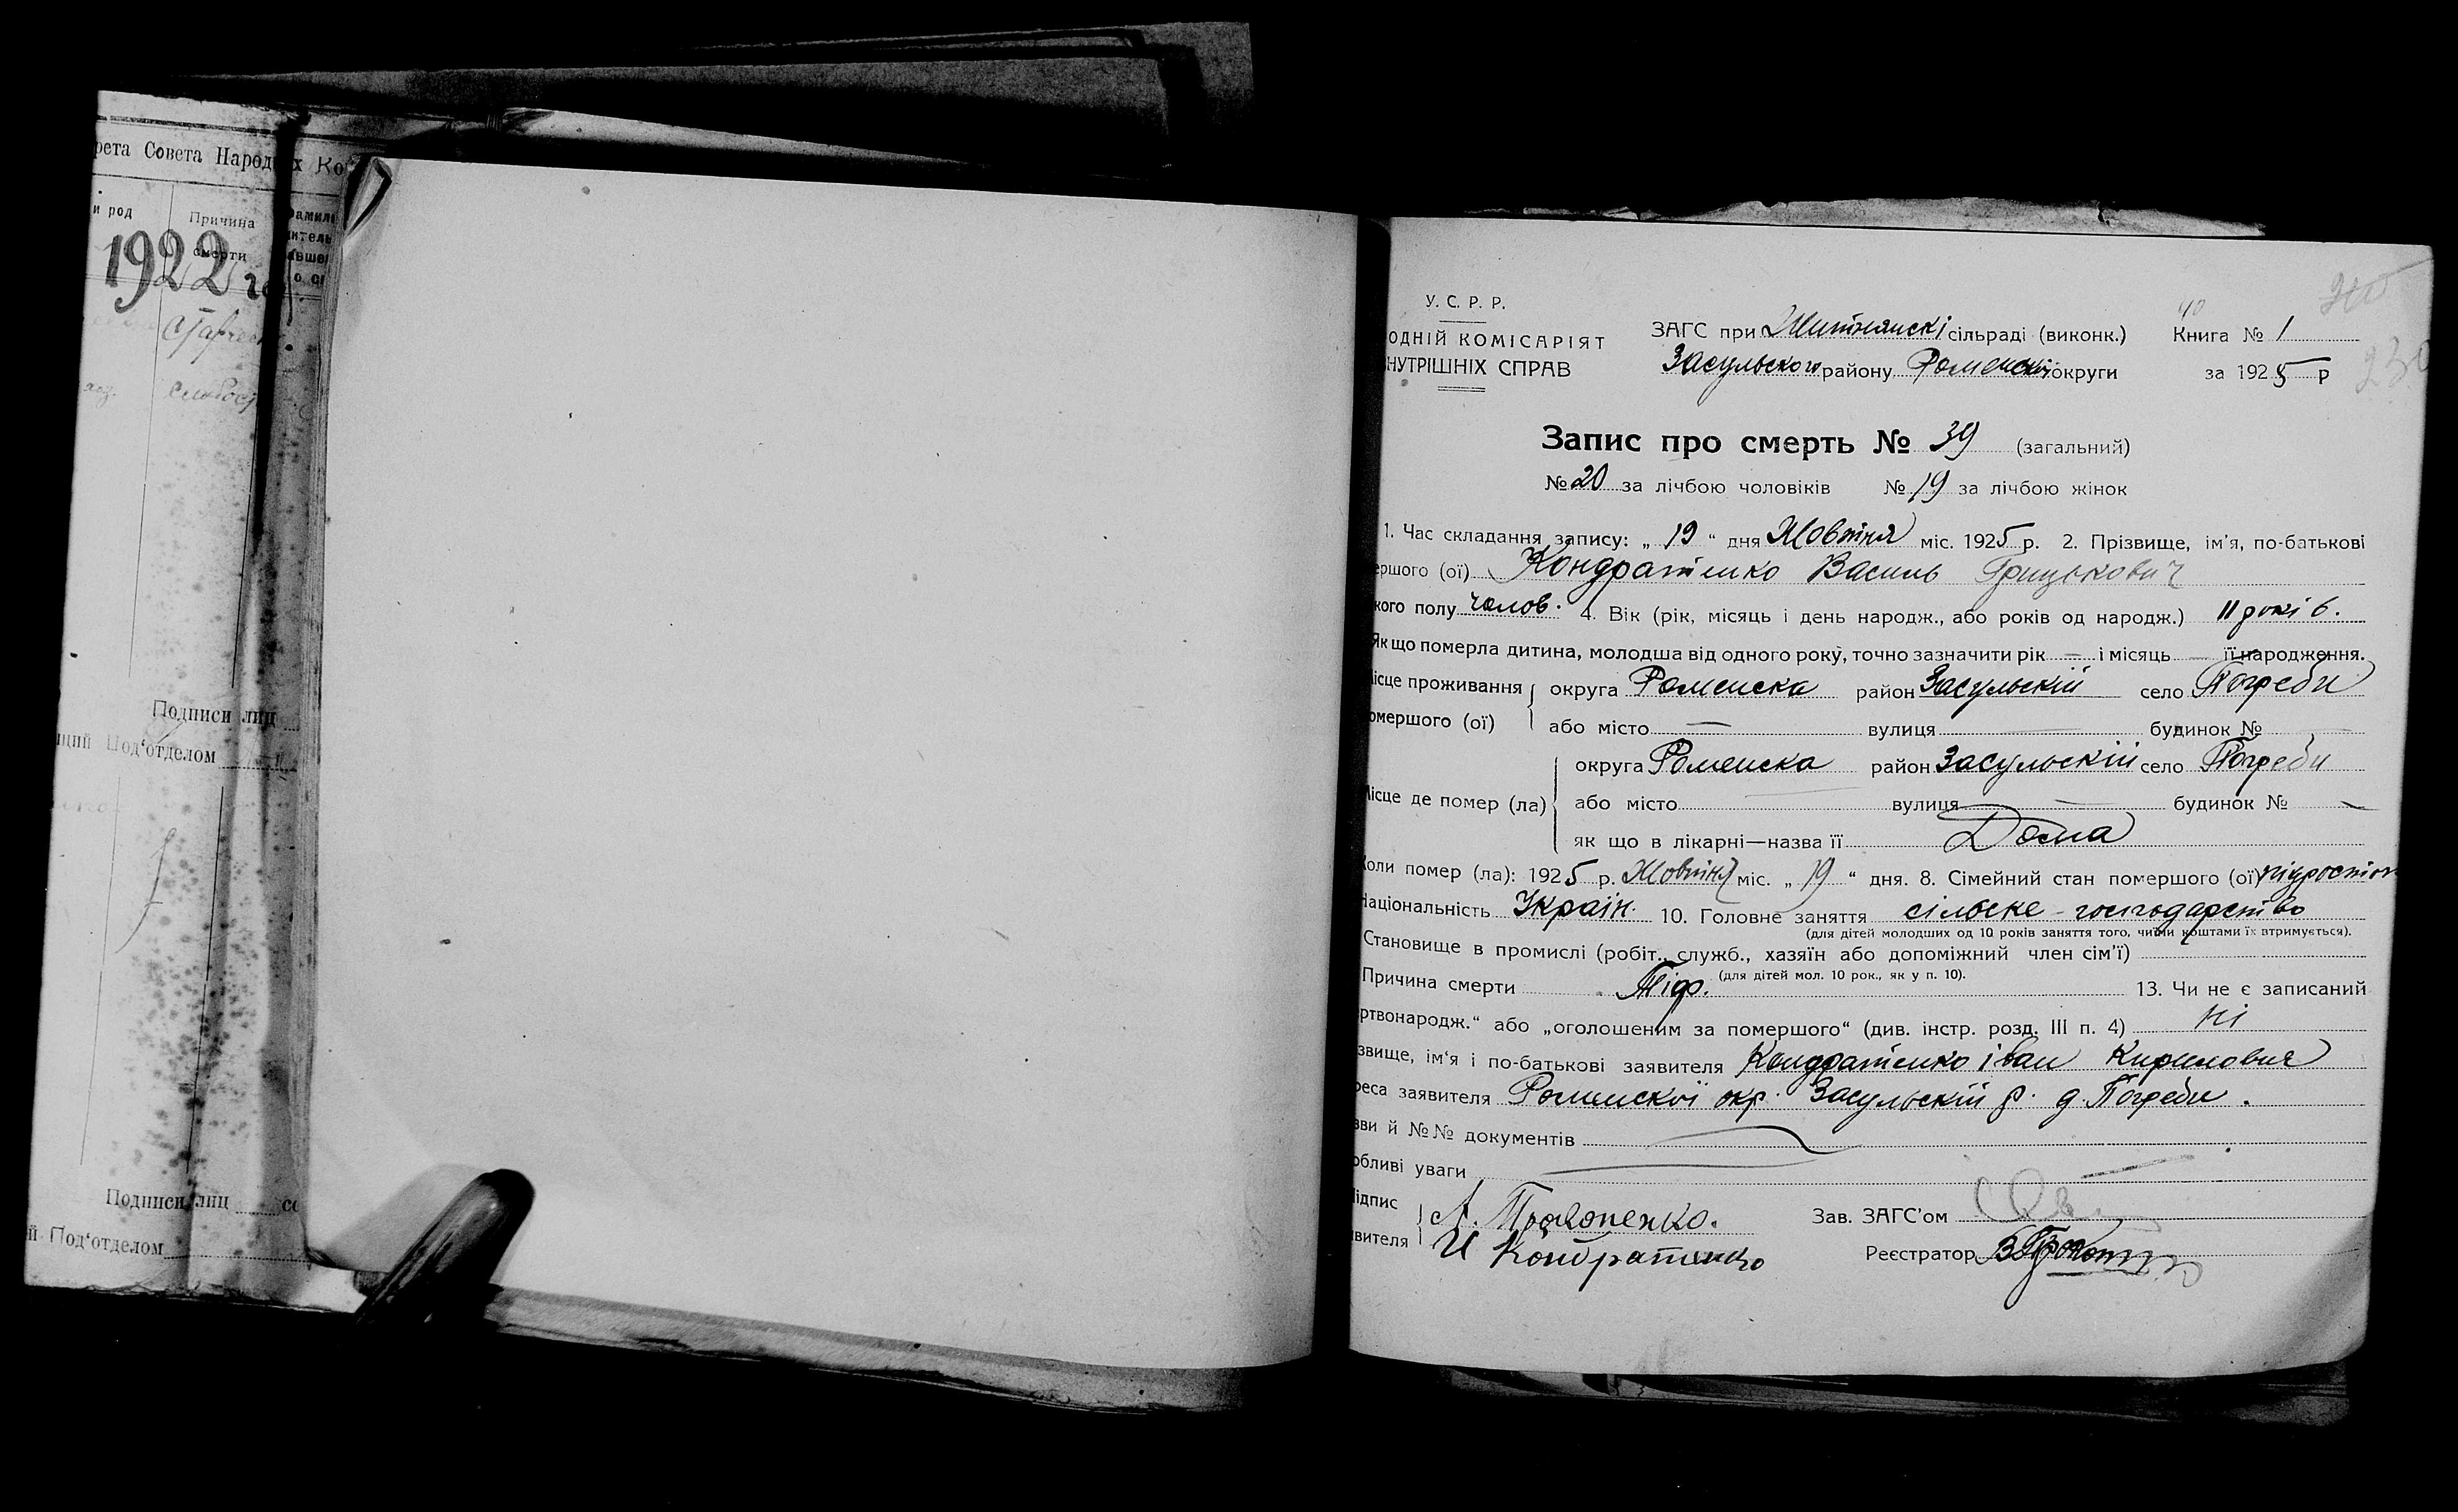 рета Совета Народ х Ко
и род Причина смерти
1922 го
Подписи лиц
Под‘отделом
Подписи лиц
й Под‘отделом
У. С. Р. Р.
ОДНІЙ КОМІСАРІЯТ
НУТРІШНІХ СПРАВ
ЗАГС при сільраді (виконк.) Книга № 1
Засульского району Роменскої округи за 1925 р
230
Запис про смерть № 39 (загальний)
№ 20 за лічбою чоловіків № 19 за лічбою жінок
1. Час складання запису: „ 19 “ дня Жовтня міс. 1925 р. 2. Прізвище, ім’я, по-батькові
ершого (ої) Кондратенко Василь Грицькович
кого полу чолов. 4. Вік (рік, місяць і день народж., або років од народж.) 11 років.
Як що померла дитина, молодша від одного року, точно зазначити рік — і місяць — її народження.
ісце проживання округа Роменска район Засульскій село Погреби
омершого (ої) або місто — вулиця — будинок №
округа Роменска район Засульскій село Погреби
ісце де помер (ла) або місто вулиця — будинок № —
як що в лікарні—назва її Дома
оли помер (ла): 1925 р. Жовтня міс. „ 19 “ дня. 8. Сімейний стан померш­ого (ої) підросток
Національність Украін. 10. Головне заняття сільске - господарство
(для дітей молодших од 10 років заняття того, чиїми коштами їх втримується).
Становище в промислі (робіт., служб., хазяїн або допоміжний член сім’ї)
(для дітей мол. 10 рок., як у п. 10).
Причина смерти Тіф. 13. Чи не є записаний
ртвонародж.“ або „оголошеним за помершого“ (див. інстр. розд. III п. 4) ні
звище, ім‘я і по-батькові заявителя Кондратенко Іван Кирилович
реса заявителя Роменскої окр. Засульскій р. д. Погреби.
зви й №№ документів
обливі уваги
ідпис
явителя И Кондратенко
Зав. ЗАГС’ом
Реєстратор